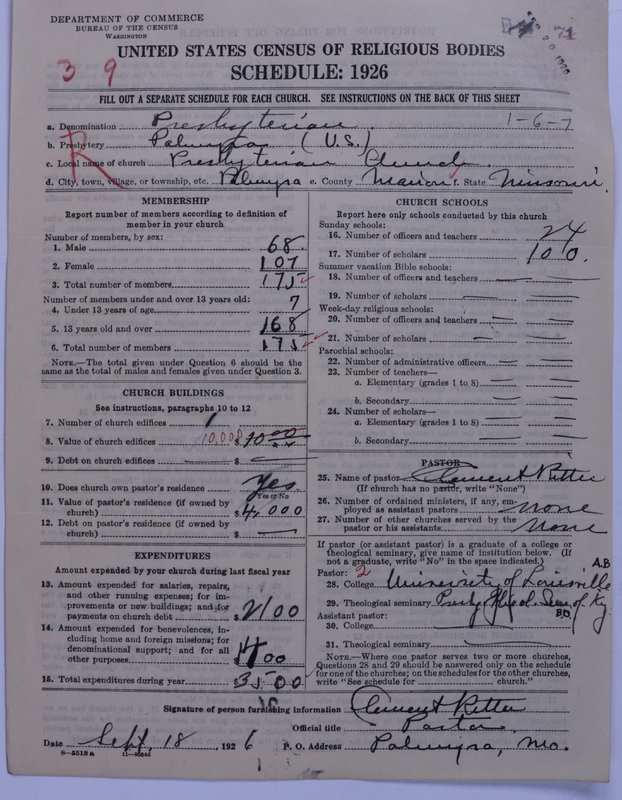 DEPARTMENT OF COMMERCE
BUREAU OF THE CENSUS
WASHINGTON
UNITED STATES CENSUS OF RELIGIOUS BODIES
39
SCHEDULE: 1926
FILL OUT A SEPARATE SCHEDULE FOR EACH CHURCH. SEE INSTRUCTIONS ON THE BACK OF THIS SHEET
a. Denomination Presbyterian 1-6-7
b. Presbytery Palmyra (U.S.)
R
c. Local name of church Presbyterian Church
d. City, town, village, or township, etc. Palmyra e. County Marion f. State Missouri.
MEMBERSHIP
Report number of members according to definition of
member in your church
Number of members, by sex:
1. Male 68
2. Female 107
3. Total number of members 175
Number of members under and over 13 years old:
4. Under 13 years of age 7
5. 13 years old and over 168
6. Total number of members 175
NOTE.—The total given under Question 6 should be the
same as the total of males and females given under Question 3.
CHURCH BUILDINGS
See instructions, paragraphs 10 to 12
7. Number of church edifices 1
8. Value of church edifices 10,000 $
9. Debt on church edifices $ —
10. Does church own pastor's residence Yes
Yes or No
11. Value of pastor's residence (if owned by
church) $ 4,000
12. Debt on pastor's residence (if owned by
church) $ —
EXPENDITURES
Amount expended by your church during last fiscal year
13. Amount expended for salaries, repairs,
and other running expenses; for im-
provements or new buildings; and for
payments on church debt $ 2100
14. Amount expended for benevolences, in-
cluding home and foreign missions; for
denominational support; and for all
other purposes $ 1400
15. Total expenditures during year $ 3500
CHURCH SCHOOLS
Report here only schools conducted by this church
Sunday schools:
16. Number of officers and teachers 24
17. Number of scholars 100.
Summer vacation Bible schools:
18. Number of officers and teachers —
19. Number of scholars —
Week-day religious schools:
20. Number of officers and teachers —
21. Number of scholars —
Parochial schools:
22. Number of administrative officers —
23. Number of teachers—
a. Elementary (grades 1 to 8) —
b. Secondary —
24. Number of scholars—
a. Elementary (grades 1 to 8) —
b. Secondary —
PASTOR
25. Name of pastor Clement Ritter
(If church has no pastor, write "None")
26. Number of ordained ministers, if any, em-
ployed as assistant pastors none
27. Number of other churches served by the
pastor or his assistants none
If pastor (or assistant pastor) is a graduate of a college or
theological seminary, give name of institution below. (If
not a graduate, write "No" in the space indicated.)
Pastor: 2 A.B
28. College University of Louisville
29. Theological seminary Presby Theol. Sem of Ky.
Assistant pastor: B.D.
30. College —
31. Theological seminary —
NOTE.—Where one pastor serves two or more churches,
Questions 28 and 29 should be answered only on the schedule
for one of the churches; on the schedules for the other churches,
write "See schedule for church."
Signature of person furnishing information Clement Ritter
Official title Pastor
Date Sept. 18 1926 P. O. Address Palmyra, Mo.
8—5518a